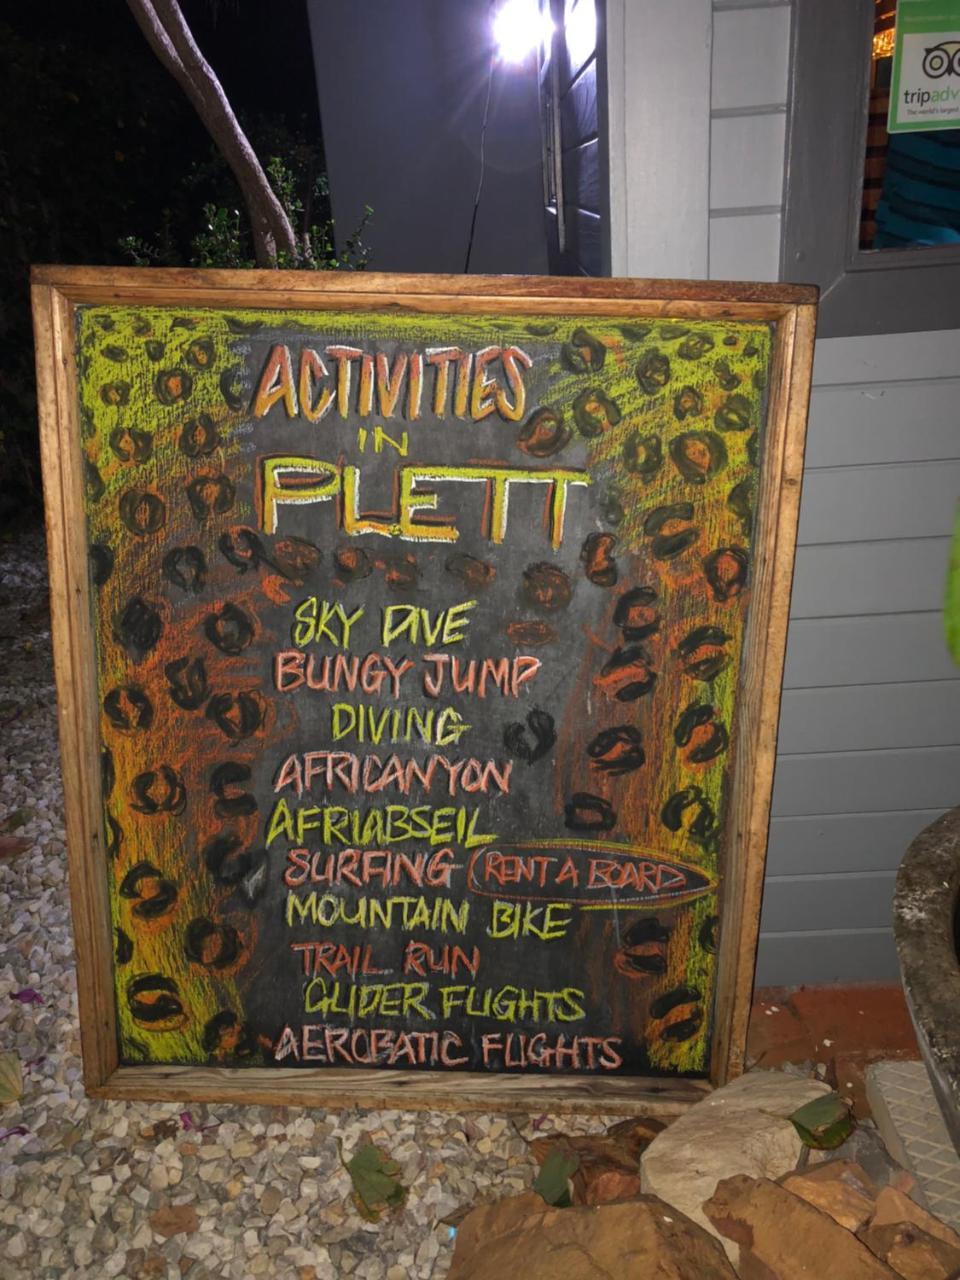 tripadv
The world's largest
ACTIVITIES
IN
PLETT
SKY DIVE
BUNGY JUMP
DIVING
AFRICANYON
AFRIABSEIL
SURFING (RENT A BOARD)
MOUNTAIN BIKE
TRAIL RUN
GLIDER FLIGHTS
AEROBATIC FLIGHTS